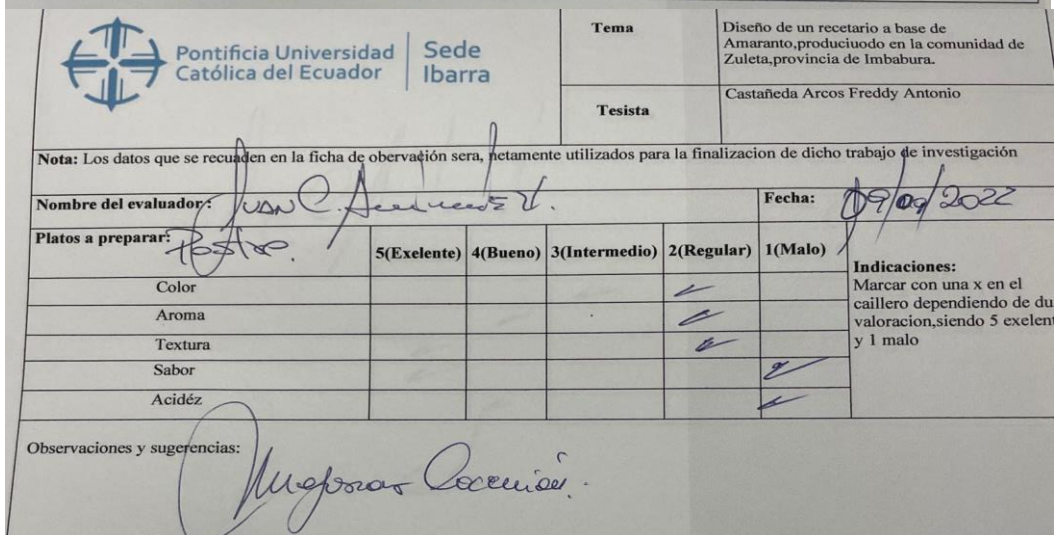 Pontificia Universidad
Católica del Ecuador
Sede
Ibarra
Tema
Diseño de un recetario a base de
Amaranto,produciuodo en la comunidad de
Zuleta,provincia de Imbabura.
Tesista
Castañeda Arcos Freddy Antonio
Nota: Los datos que se recuaden en la ficha de obervación sera, netamente utilizados para la finalizacion de dicho trabajo de investigación
Nombre del evaluador: JUAN C.
Fecha: 09/09/2022
Platos a preparar: Postre.
5(Exelente) 4(Bueno) 3(Intermedio) 2(Regular) 1(Malo)
Indicaciones:
Marcar con una x en el
caillero dependiendo de du
valoracion,siendo 5 exelent
y 1 malo
Color
Aroma
Textura
Sabor
Acidéz
Observaciones y sugerencias:
Mejorar Cocción.